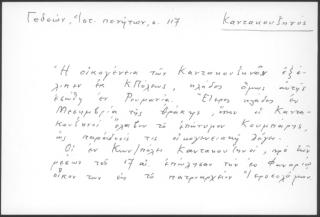 Γεδεών, Ἱστ. πενήτων, σ. 117
Καντακουζηνος
Ἡ οἰκογένεια τῶν Καντακουζηνῶν ἐξέ-
λιπεν ἐκ ΚΠόλεως, κλάδος ὅμως αὐτῆς
ἐσώθη ἐν Ρουμανίᾳ. Ἕτερος κλάδος ἐν
Μεσημβρίᾳ τῆς Θράκης, ὅπου οἱ Καντα-
κουζηνοὶ ἔλαβον τὸ ἐπώνυμον Κουμπάρης,
ὡς παράδοσίς τις οἰκογενειακὴ λέγει.
Οἱ ἐν Κων/πόλει Καντακουζηνοί, πρὸ τῶν
μέσων τοῦ 17 αἰ. ἐπώλησαν τὸν ἐν Φαναρίῳ
οἶκον των εἰς τὸ πατριαρχεῖον Ἱεροσολύμων